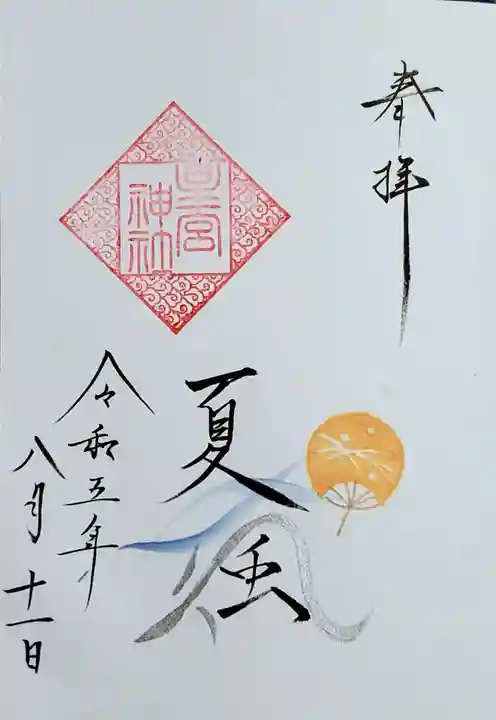 奉拝
高宮
神社
夏風
令和五年
八月十一日